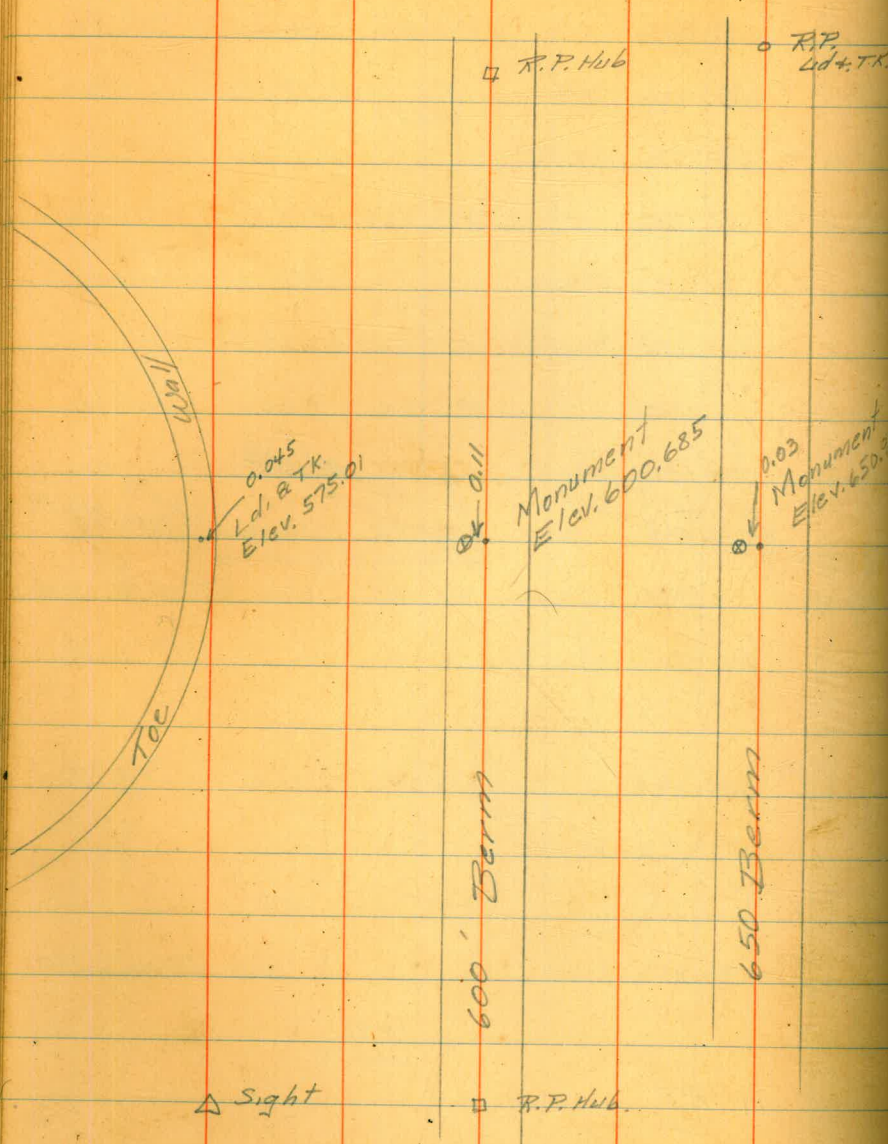 R.P. Hub
R.P.
Ld & T.K.
Wall
0.045
Ld. & T.K.
Elev. 575.01
0.11
Monument
Elev. 600.685
0.03
Monument
Elev. 650.
Toe
600' Berm
650 Berm
Sight
R.P. Hub.